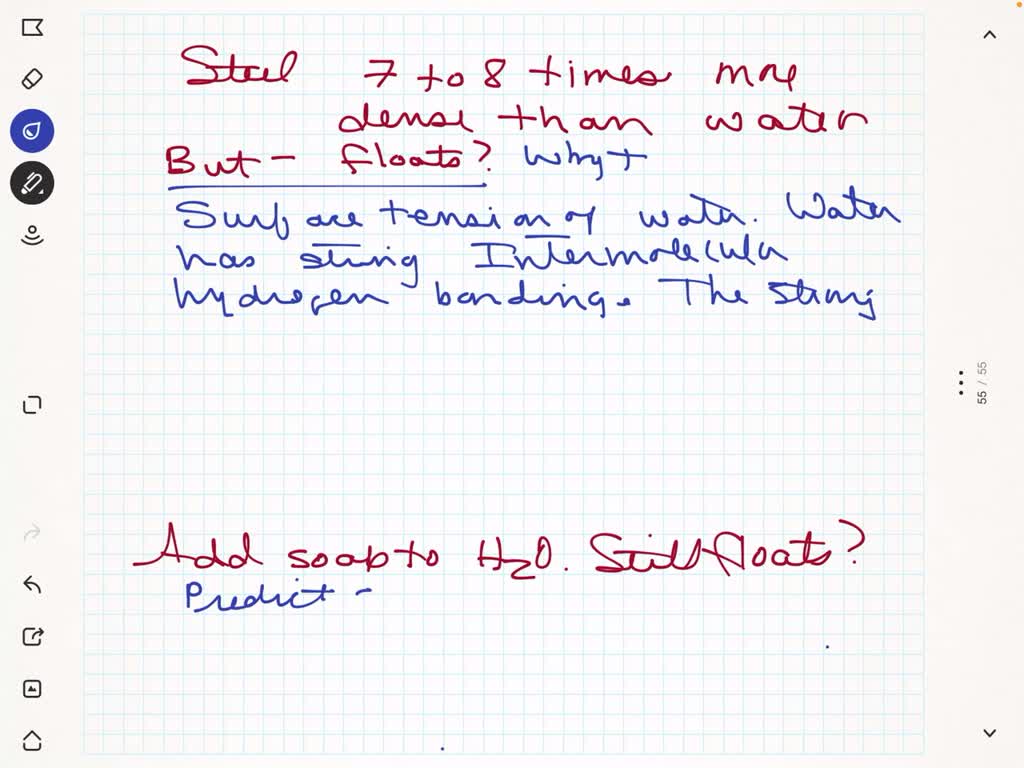 Steel 7 to 8 times more
dense than water
But - floats? Why+
Surface tension of water. Water
has string Intermolecular
hydrogen bonding. The strong
55 / 55
Add soap to H2O. Still floats?
Predict -